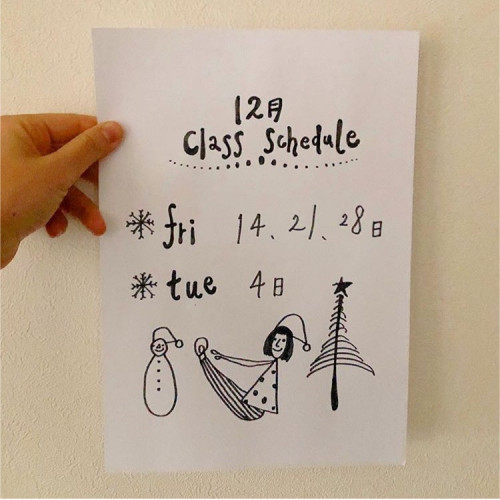 12月
Class Schedule
fri 14、21、28日
tue 4日